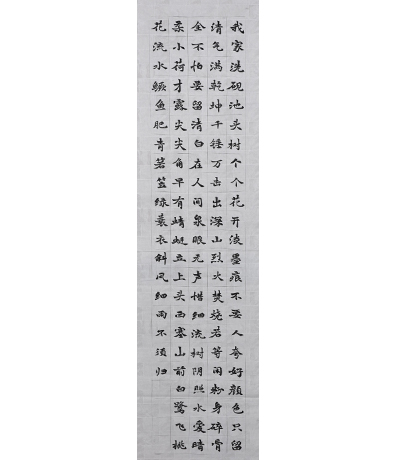 我家洗砚池头树个个花开淡墨痕不要人夸好颜色只留
清气满乾坤千锤万击出深山烈火焚烧若等闲粉身碎骨
全不怕要留清白在人间泉眼无声惜细流树阴照水爱晴
柔小荷才露尖尖角早有蜻蜓立上头西塞山前白鹭飞桃
花流水鳜鱼肥青箬笠绿蓑衣斜风细雨不须归